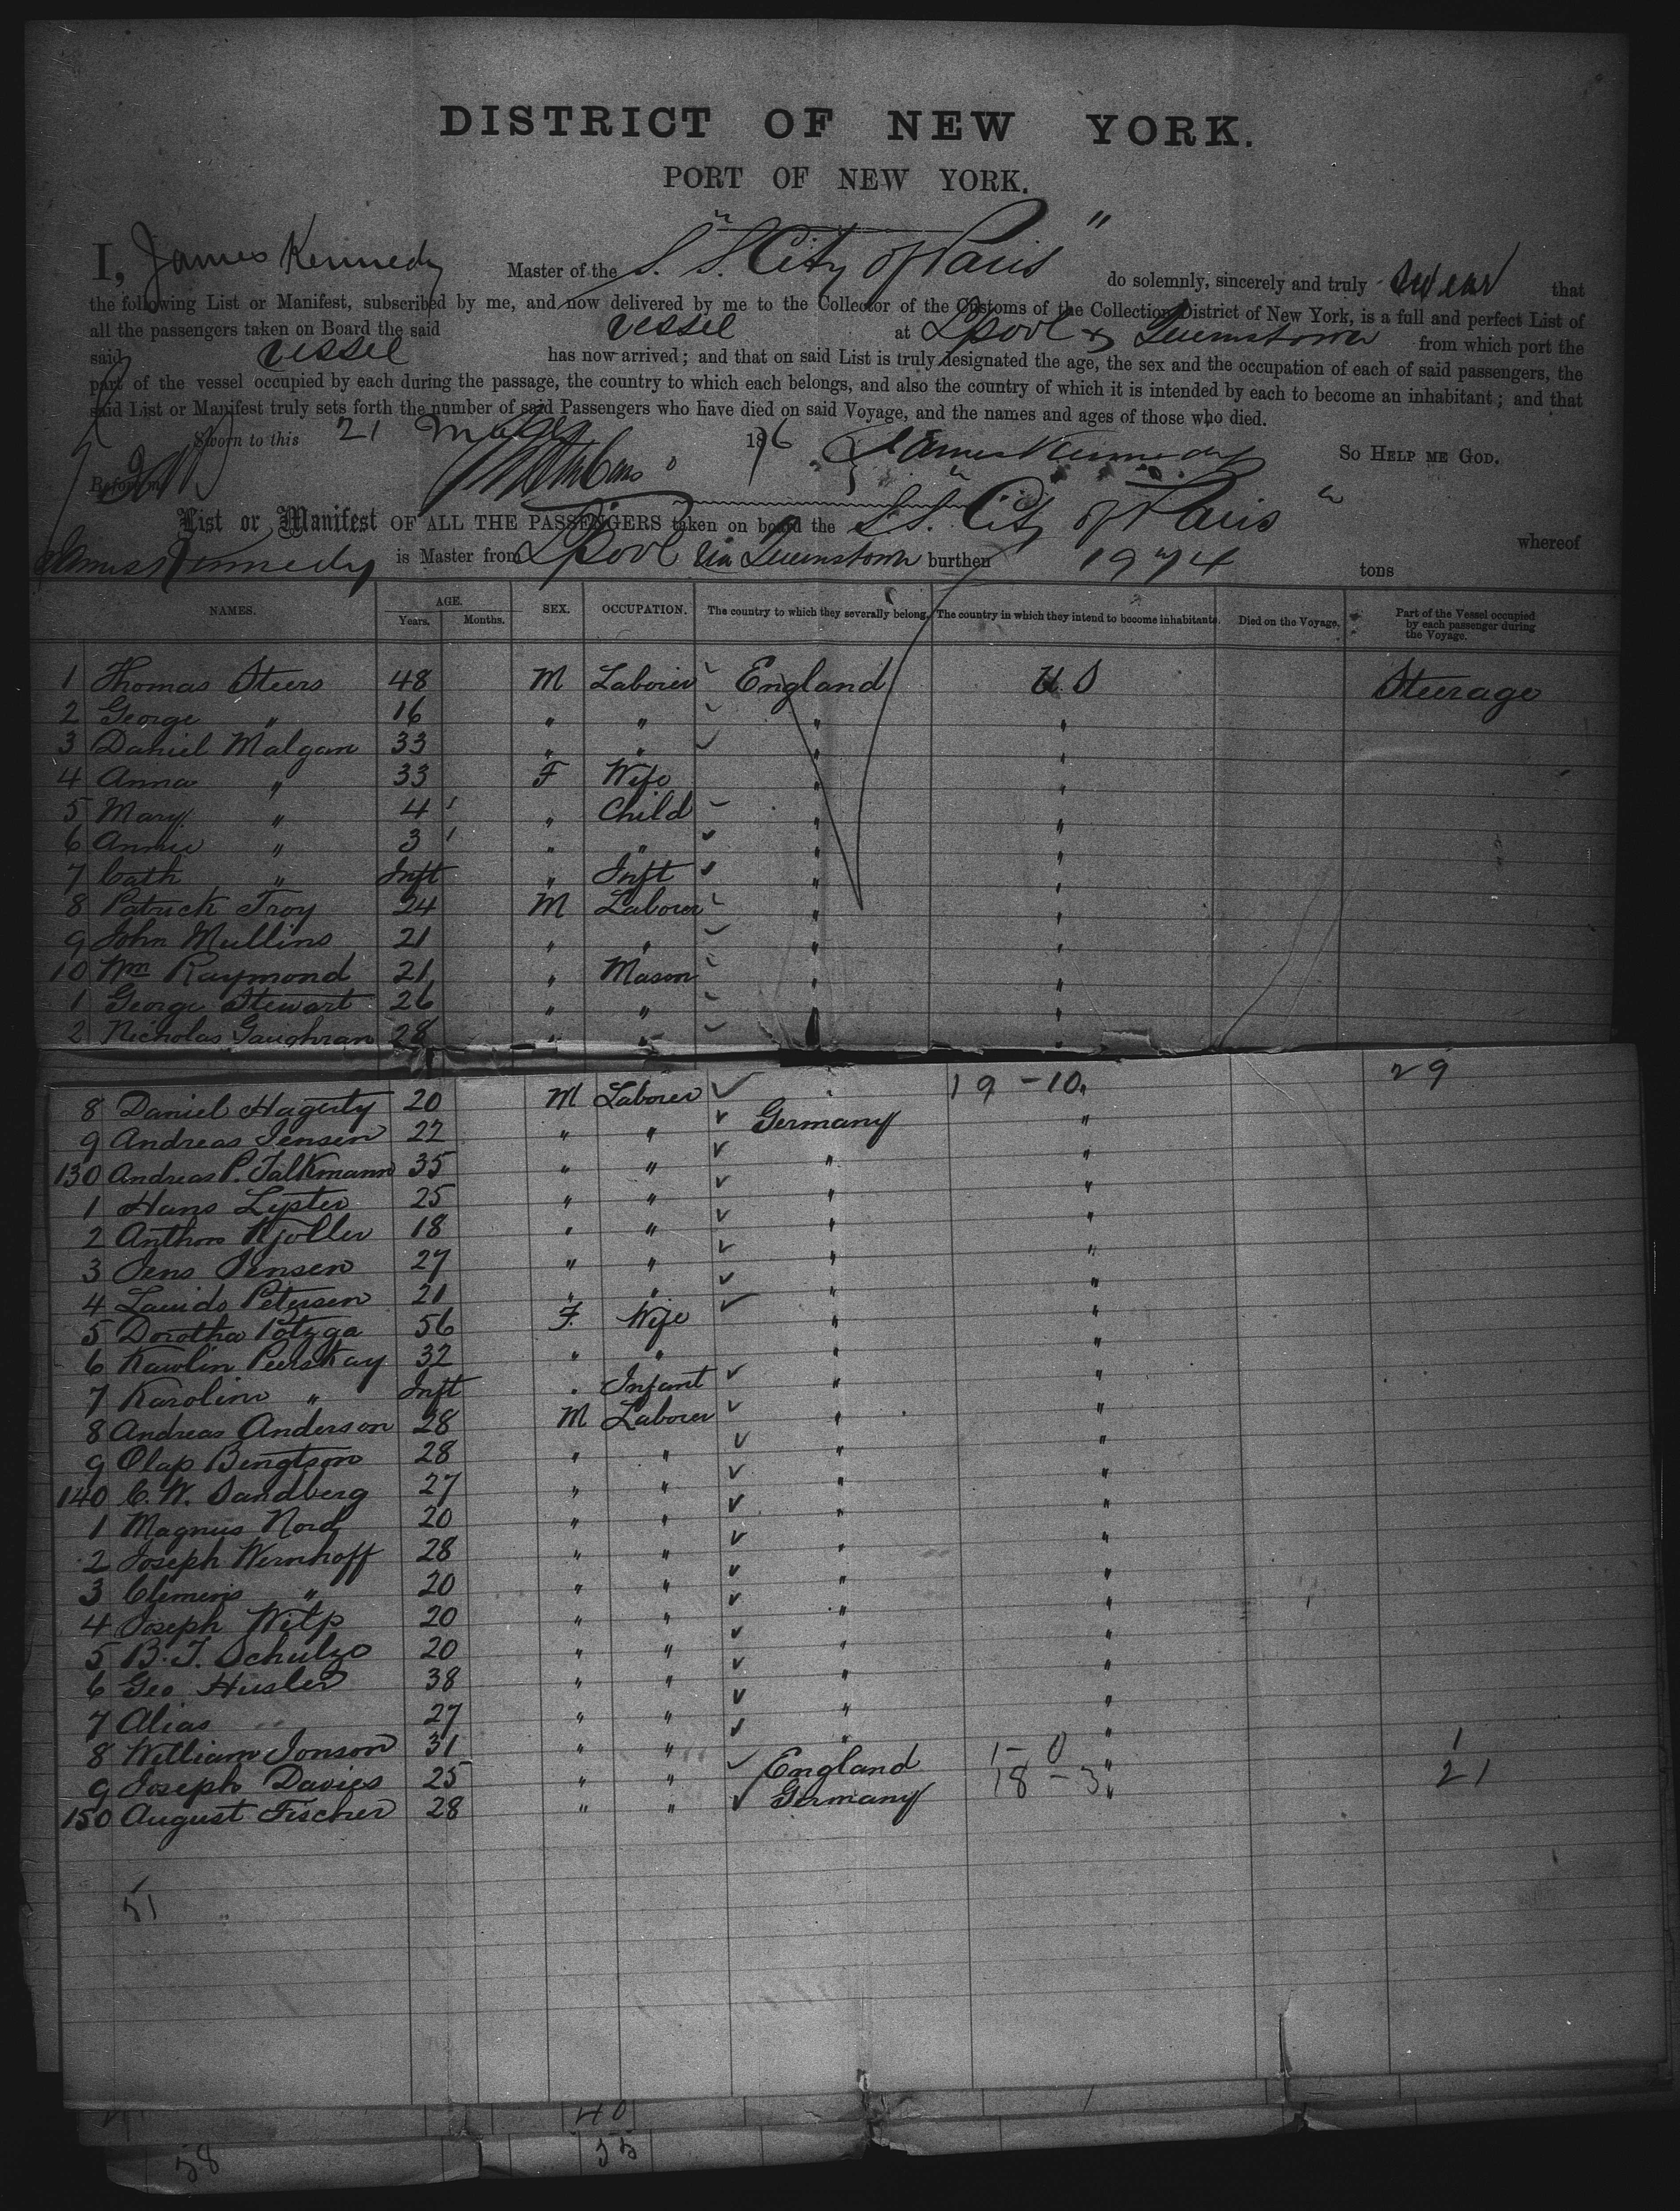 DISTRICT OF NEW YORK.
PORT OF NEW YORK.
I, James Kennedy Master of the "S. S. City of Paris" do solemnly, sincerely and truly swear that
the following List or Manifest, subscribed by me, and now delivered by me to the Collector of the Customs of the Collection District of New York, is a full and perfect List of
all the passengers taken on Board the said vessel at Lpool & Queenstown from which port the
said vessel has now arrived; and that on said List is truly designated the age, the sex and the occupation of each of said passengers, the
part of the vessel occupied by each during the passage, the country to which each belongs, and also the country of which it is intended by each to become an inhabitant; and that
said List or Manifest truly sets forth the number of said Passengers who have died on said Voyage, and the names and ages of those who died.
Sworn to this 21 1876 James Kennedy So HELP ME GOD.
Before me
List or Manifest OF ALL THE PASSENGERS taken on board the S.S. "City of Paris" whereof
James Kennedy is Master from Lpool via Queenstown burthen 1974 tons
NAMES. AGE. Years. Months. SEX. OCCUPATION. The country to which they severally belong. The country in which they intend to become inhabitants. Died on the Voyage. Part of the Vessel occupied by each passenger during the Voyage.
1 Thomas Steers 48 M Laborer England U S Steerage
2 George " 16 " " " "
3 Daniel Malgan 33 " " " "
4 Anna " 33 F Wife " "
5 Mary " 4 " Child " "
6 Annie " 3 " " " "
7 Cath " Inft " Inft " "
8 Patrick Troy 24 M Laborer " "
9 John Mullins 21 " " " "
10 Wm Raymond 21 " Mason " "
1 George Stewart 26 " " " "
2 Nicholas Gaughran 28 " " "
8 Daniel Hagerty 20 M Laborer " 19-10 " 29
9 Andreas Jensen 22 " " Germany "
130 Andreas P. Falkmann 35 " " " "
1 Hans Lyster 25 " " " "
2 Anthon Kjoller 18 " " " "
3 Jens Jensen 27 " " " "
4 Petersen 21 " " " "
5 Dorotha 56 F. Wife " "
6 Peerskay 32 " " " "
7 Karolin " Inft " Infant " "
8 Andreas Anderson 28 M Laborer " "
9 Olap Bengtson 28 " " " "
140 C. W. Sandberg 27 " " " "
1 Magnus Nord 20 " " " "
2 Joseph Wernhoff 28 " " " "
3 Clemens " 20 " " " "
4 Joseph Witp 20 " " " "
5 B. T. Schulze 20 " " " "
6 Geo Husler 38 " " " "
7 Alias 27 " " " "
8 William Jonson 31 " " " "
9 Joseph Davies 25 " " England 1-0 " 1
150 August Fischer 28 " " Germany 18-3 " 21
51
40
58 55